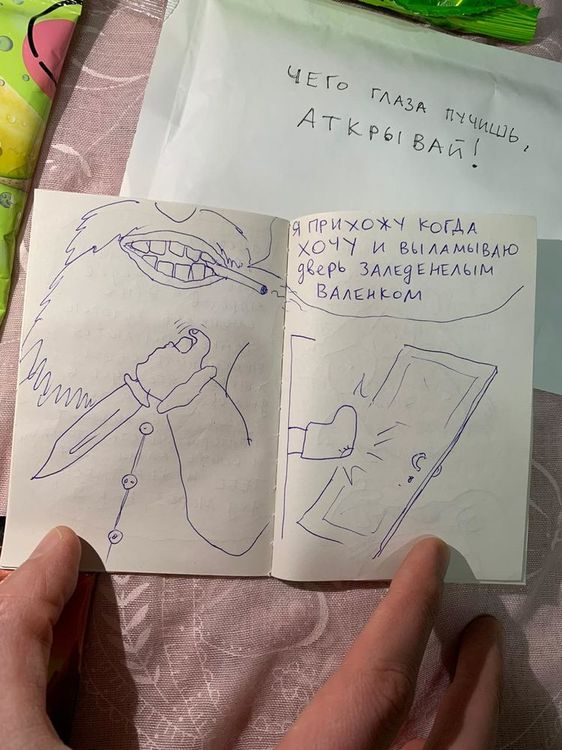 ЧЕГО ГЛАЗА ПУЧИШЬ,
АТКРЫВАЙ!
Я ПРИХОЖУ КОГДА
ХОЧУ И ВЫЛАМЫВАЮ
ДВЕРЬ ЗАЛЕДЕНЕЛЫМ
ВАЛЕНКОМ